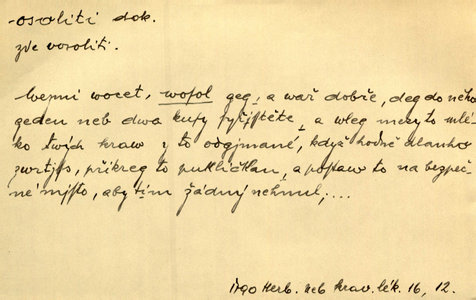 -osoliti dok.
zde vosoliti.
Wezmi wocet, wosol geg, a wař dobře, deg do něho
geden neb dwa kusy , a wleg mezy to mlé-
ko twých kraw y to odgjmané, když hodně dlauho
, přikreg to pukličkau, a postaw to na bezpeč-
né mjsto, aby tjm žádný nehnul;...
Herb. neb kraw. lék. 16, 12.